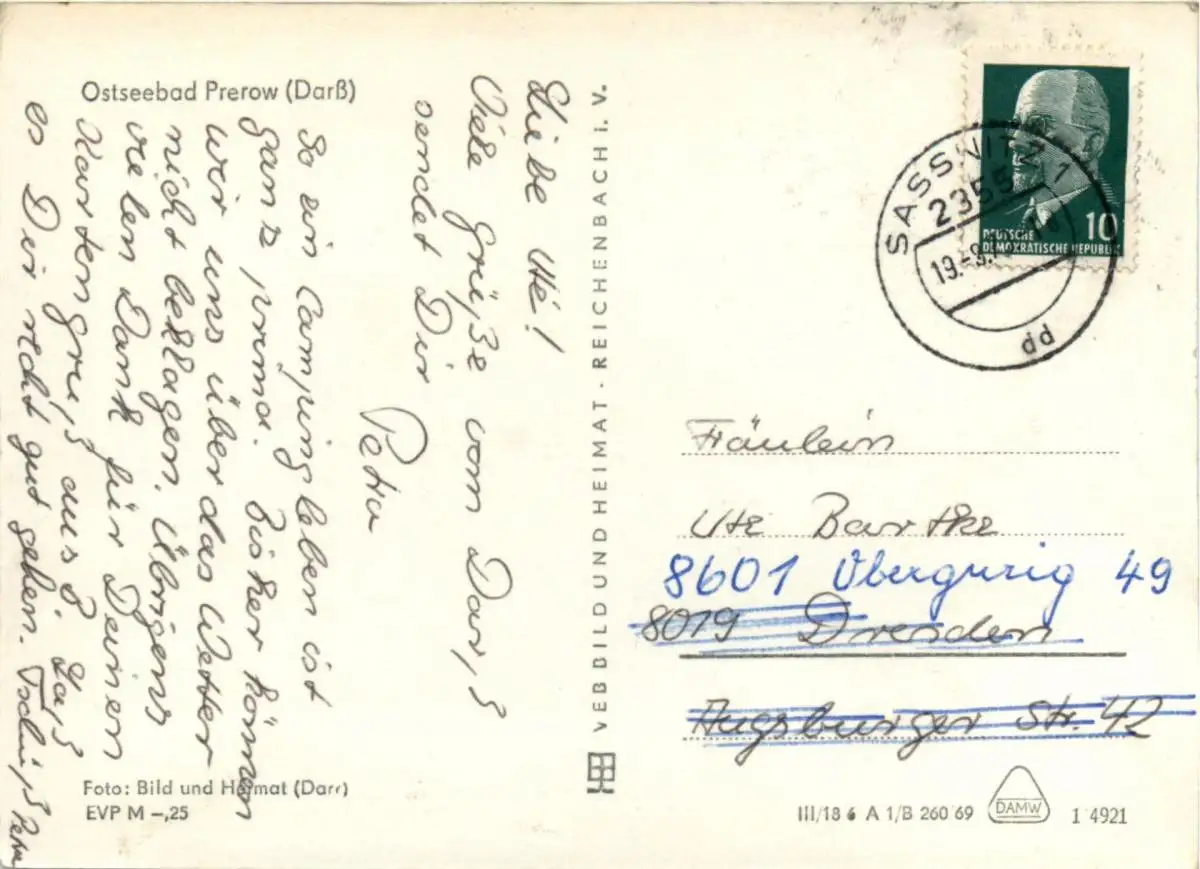 Ostseebad Prerow (Darß)
Liebe Ute!
Viele Grüße vom Darß
sendet Dir
Petra
So ein Campingleben ist
ganz prima. Bisher können
wir uns über das Wetter
nicht beklagen. Übrigens
vielen Dank für Deinen
Kartengruß aus J. Laß
es Dir recht gut gehen. Tschüß Petra
Foto: Bild und Heimat (Darr)
EVP M –,25
VEB BILD UND HEIMAT · REICHENBACH i. V.
SASSNITZ 1
2355
19.-8.
dd
10
DEUTSCHE
DEMOKRATISCHE REPUBLIK
Fräulein
Ute Bartke
8601 Obergurig 49
8019 Dresden
Augsburger Str. 42
III/18 6 A 1/B 260 69
DAMW
1 4921